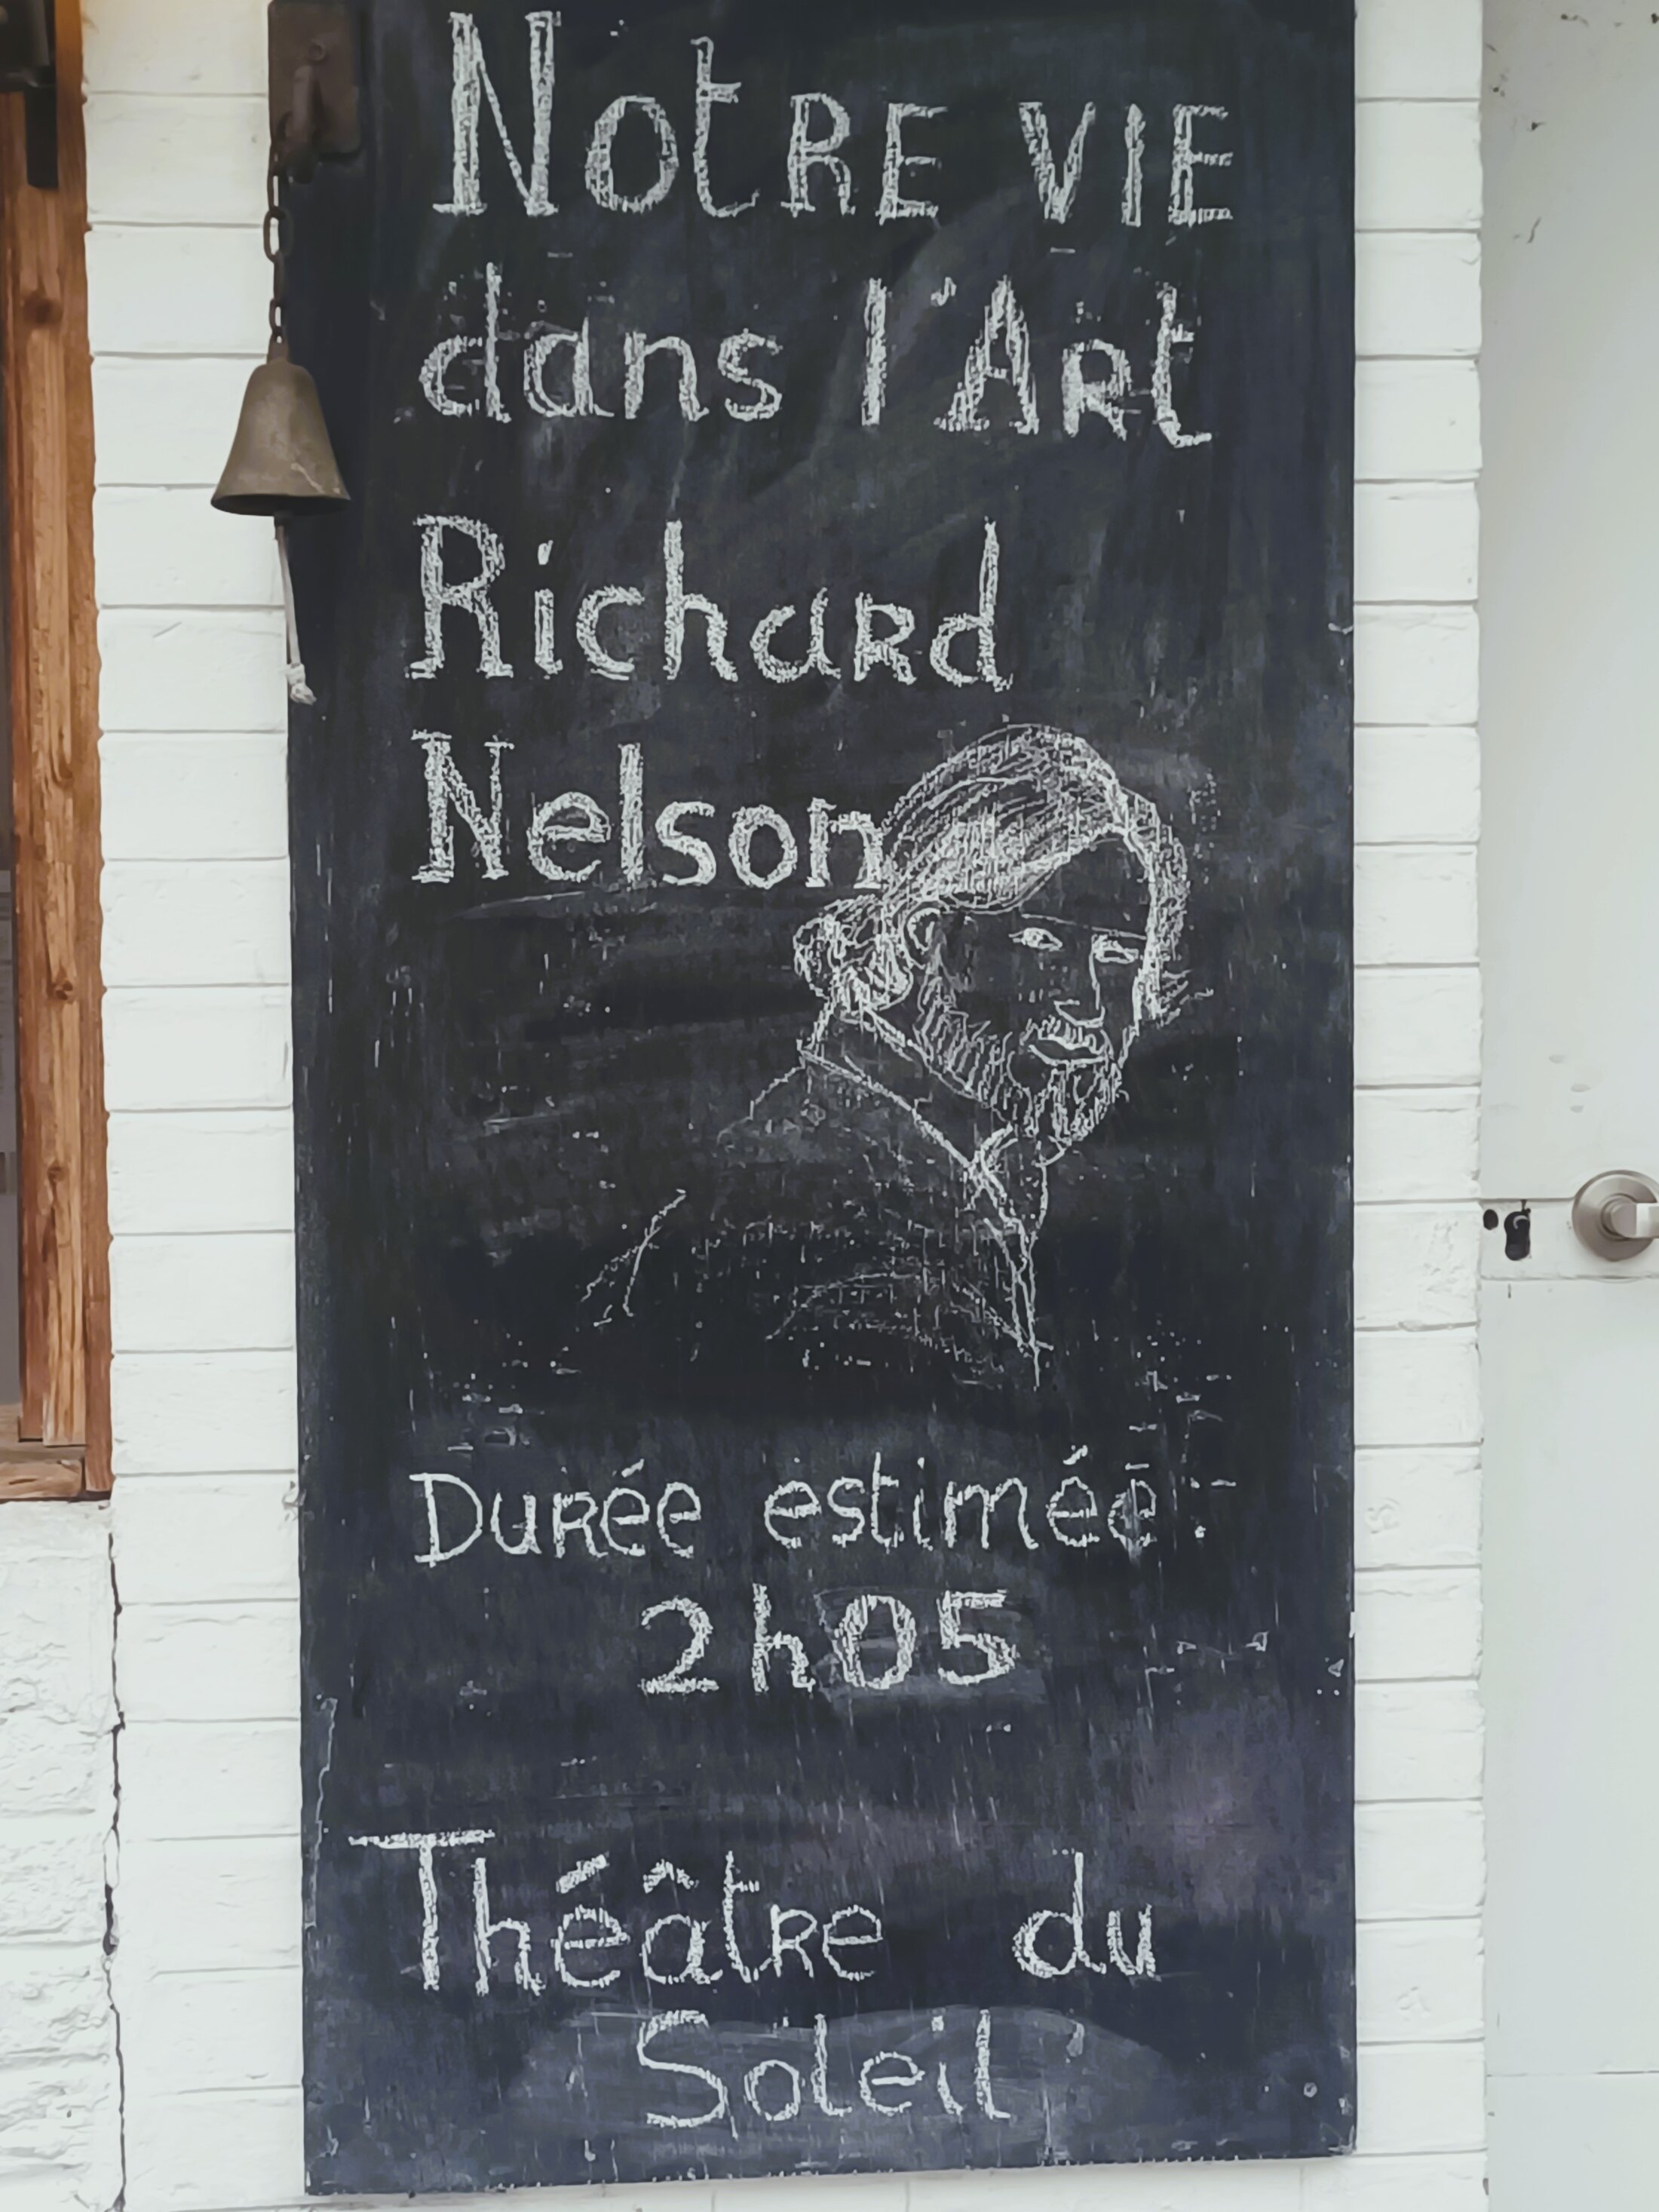 Notre vie
dans l'Art
Richard
Nelson
Durée estimée :
2h05
Théâtre du
Soleil